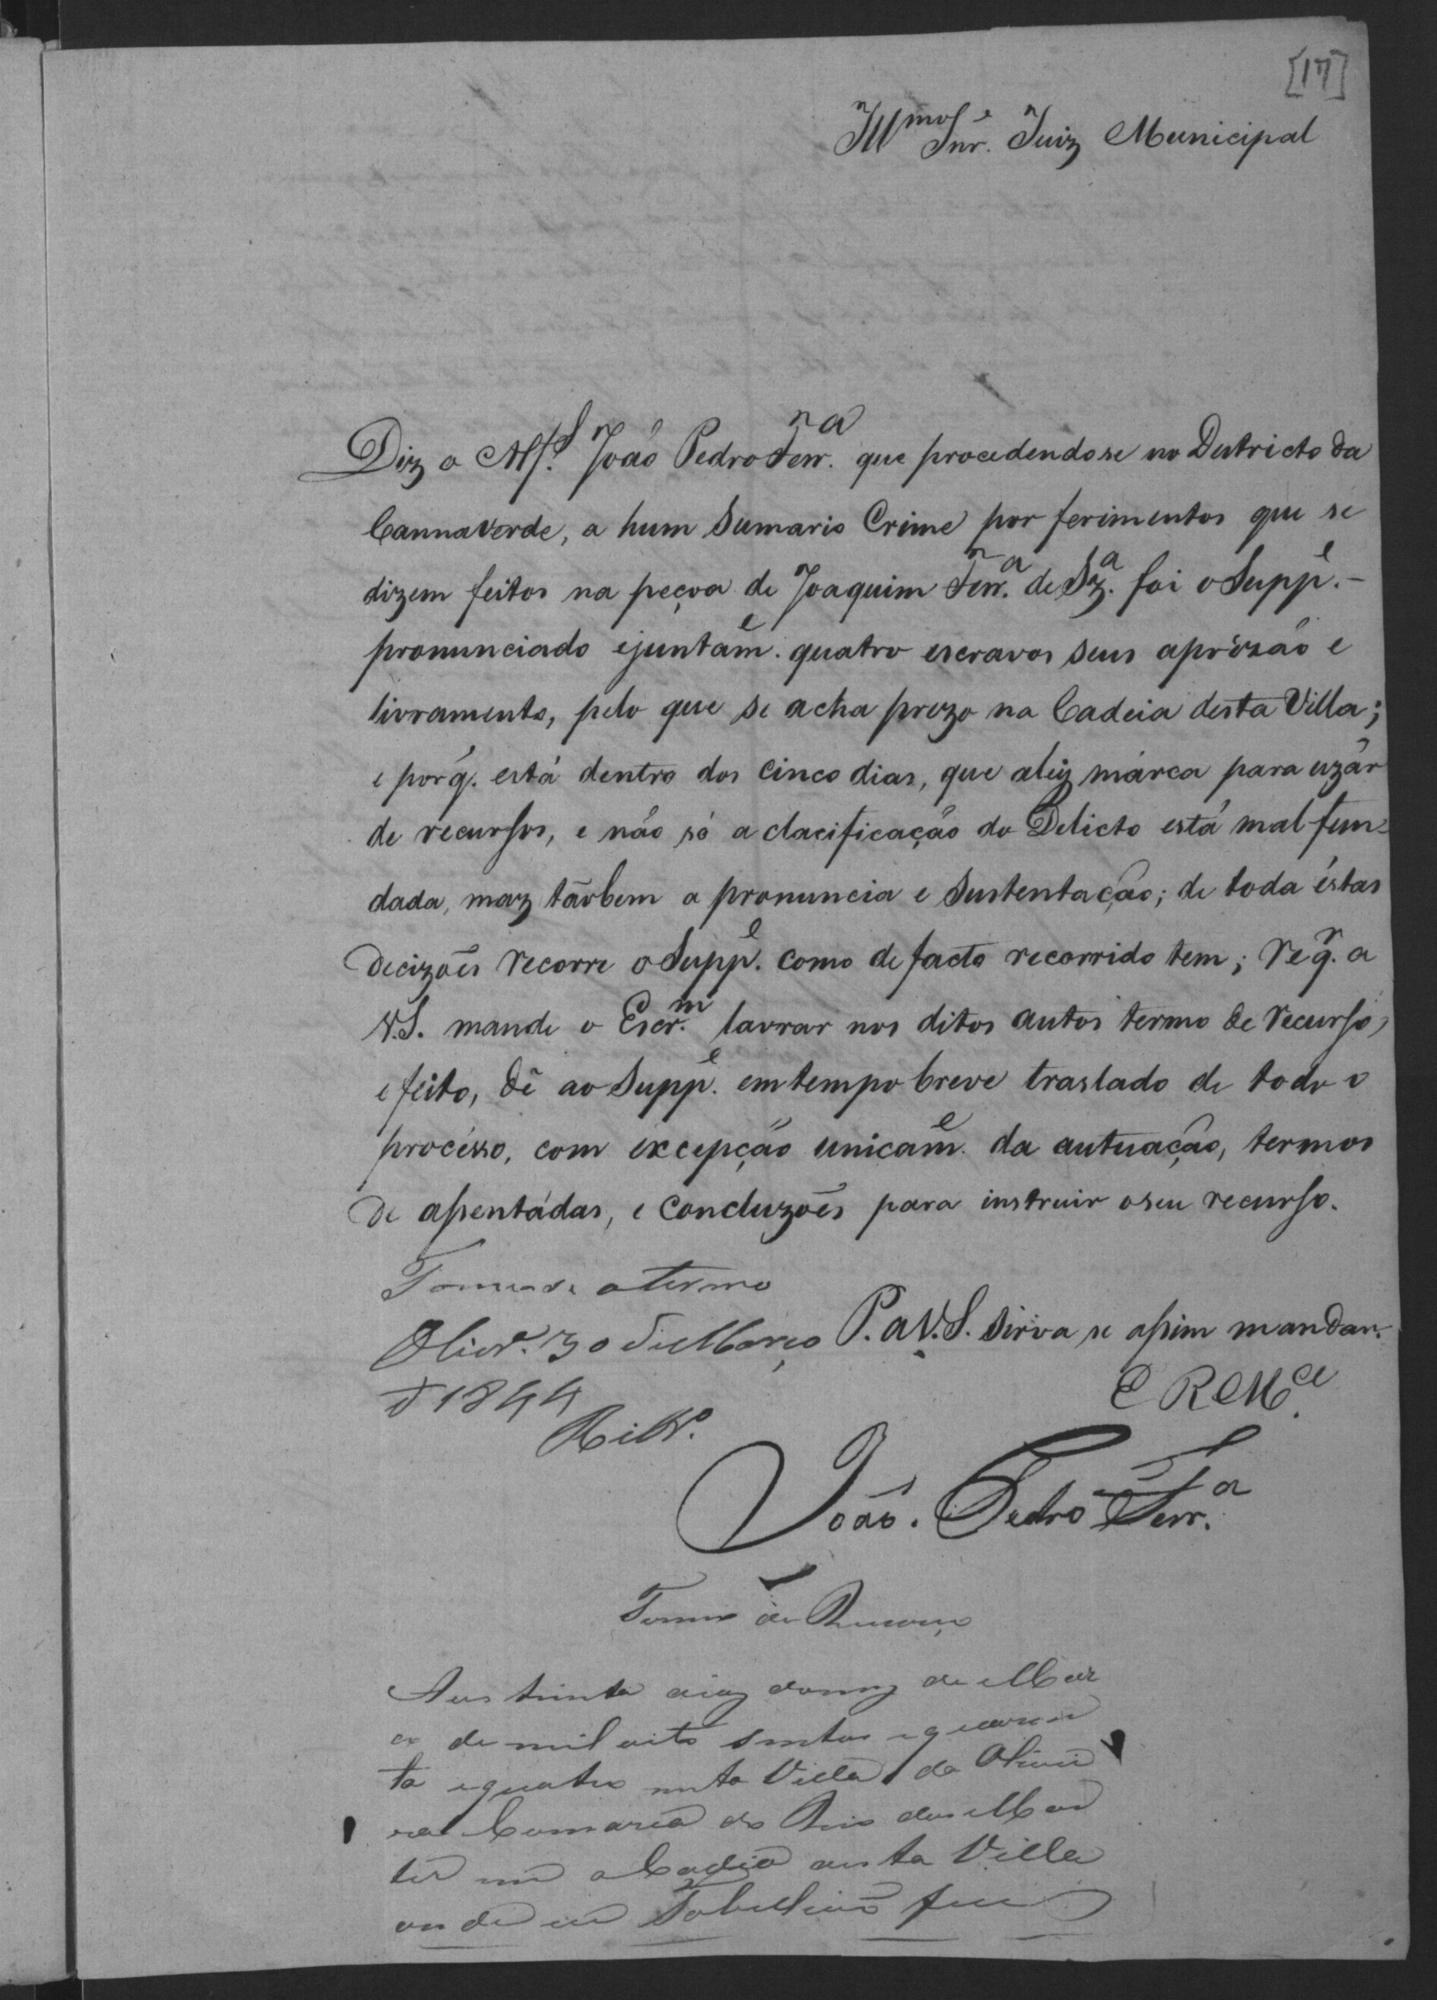 [17]
Illmo Snr. Juiz Municipal
Diz o Alfs. João Pedro Ferr.na que procedendose no Destricto da
Cannaverde, a hum Sumario Crime por ferimentos que se
dizem feitos na peçoa de Joaquim Ferr.a de Sza. foi o Suppe. -
pronunciado ejuntamẽ. quatro escravos seus aprizão e
livramento, pelo que se acha prezo na Cadeia desta Villa;
e porq̃. está dentro dos cinco dias, que aleiz márca para uzár
de recursos, e não só a clacificação do Delicto está mal fun-
dada, maz tãobem a pronuncia e Sustentação; de toda éstas
decizoẽs recorre o Suppe. como de facto recorrido tem; reqr. a
V.S. mande o Escr.m lavrar nos ditos autos termo de recurso,
e feito, dê ao Suppe. em tempo breve traslado de todo o
procésso, com excepção unicamẽ. da autuação, termos
de assentádas, e concluzoẽs para instruir oseu recurso.
Tome se o termo
Olivr.a 30 de Março
d 1844
Ribr.o
P. a V.S. sirva se assim mandar.
E R Mce.
João Pedro Ferr.a
Termo de Recurso
Aos trinta diaz domez de Mar
co de mil oito sentos equaren
ta equatro nesta Villa da Olivei
ra Comarca do Rio das Mor
tes em a Cadeia desta Villa
onde eu Tabelliaõ fui